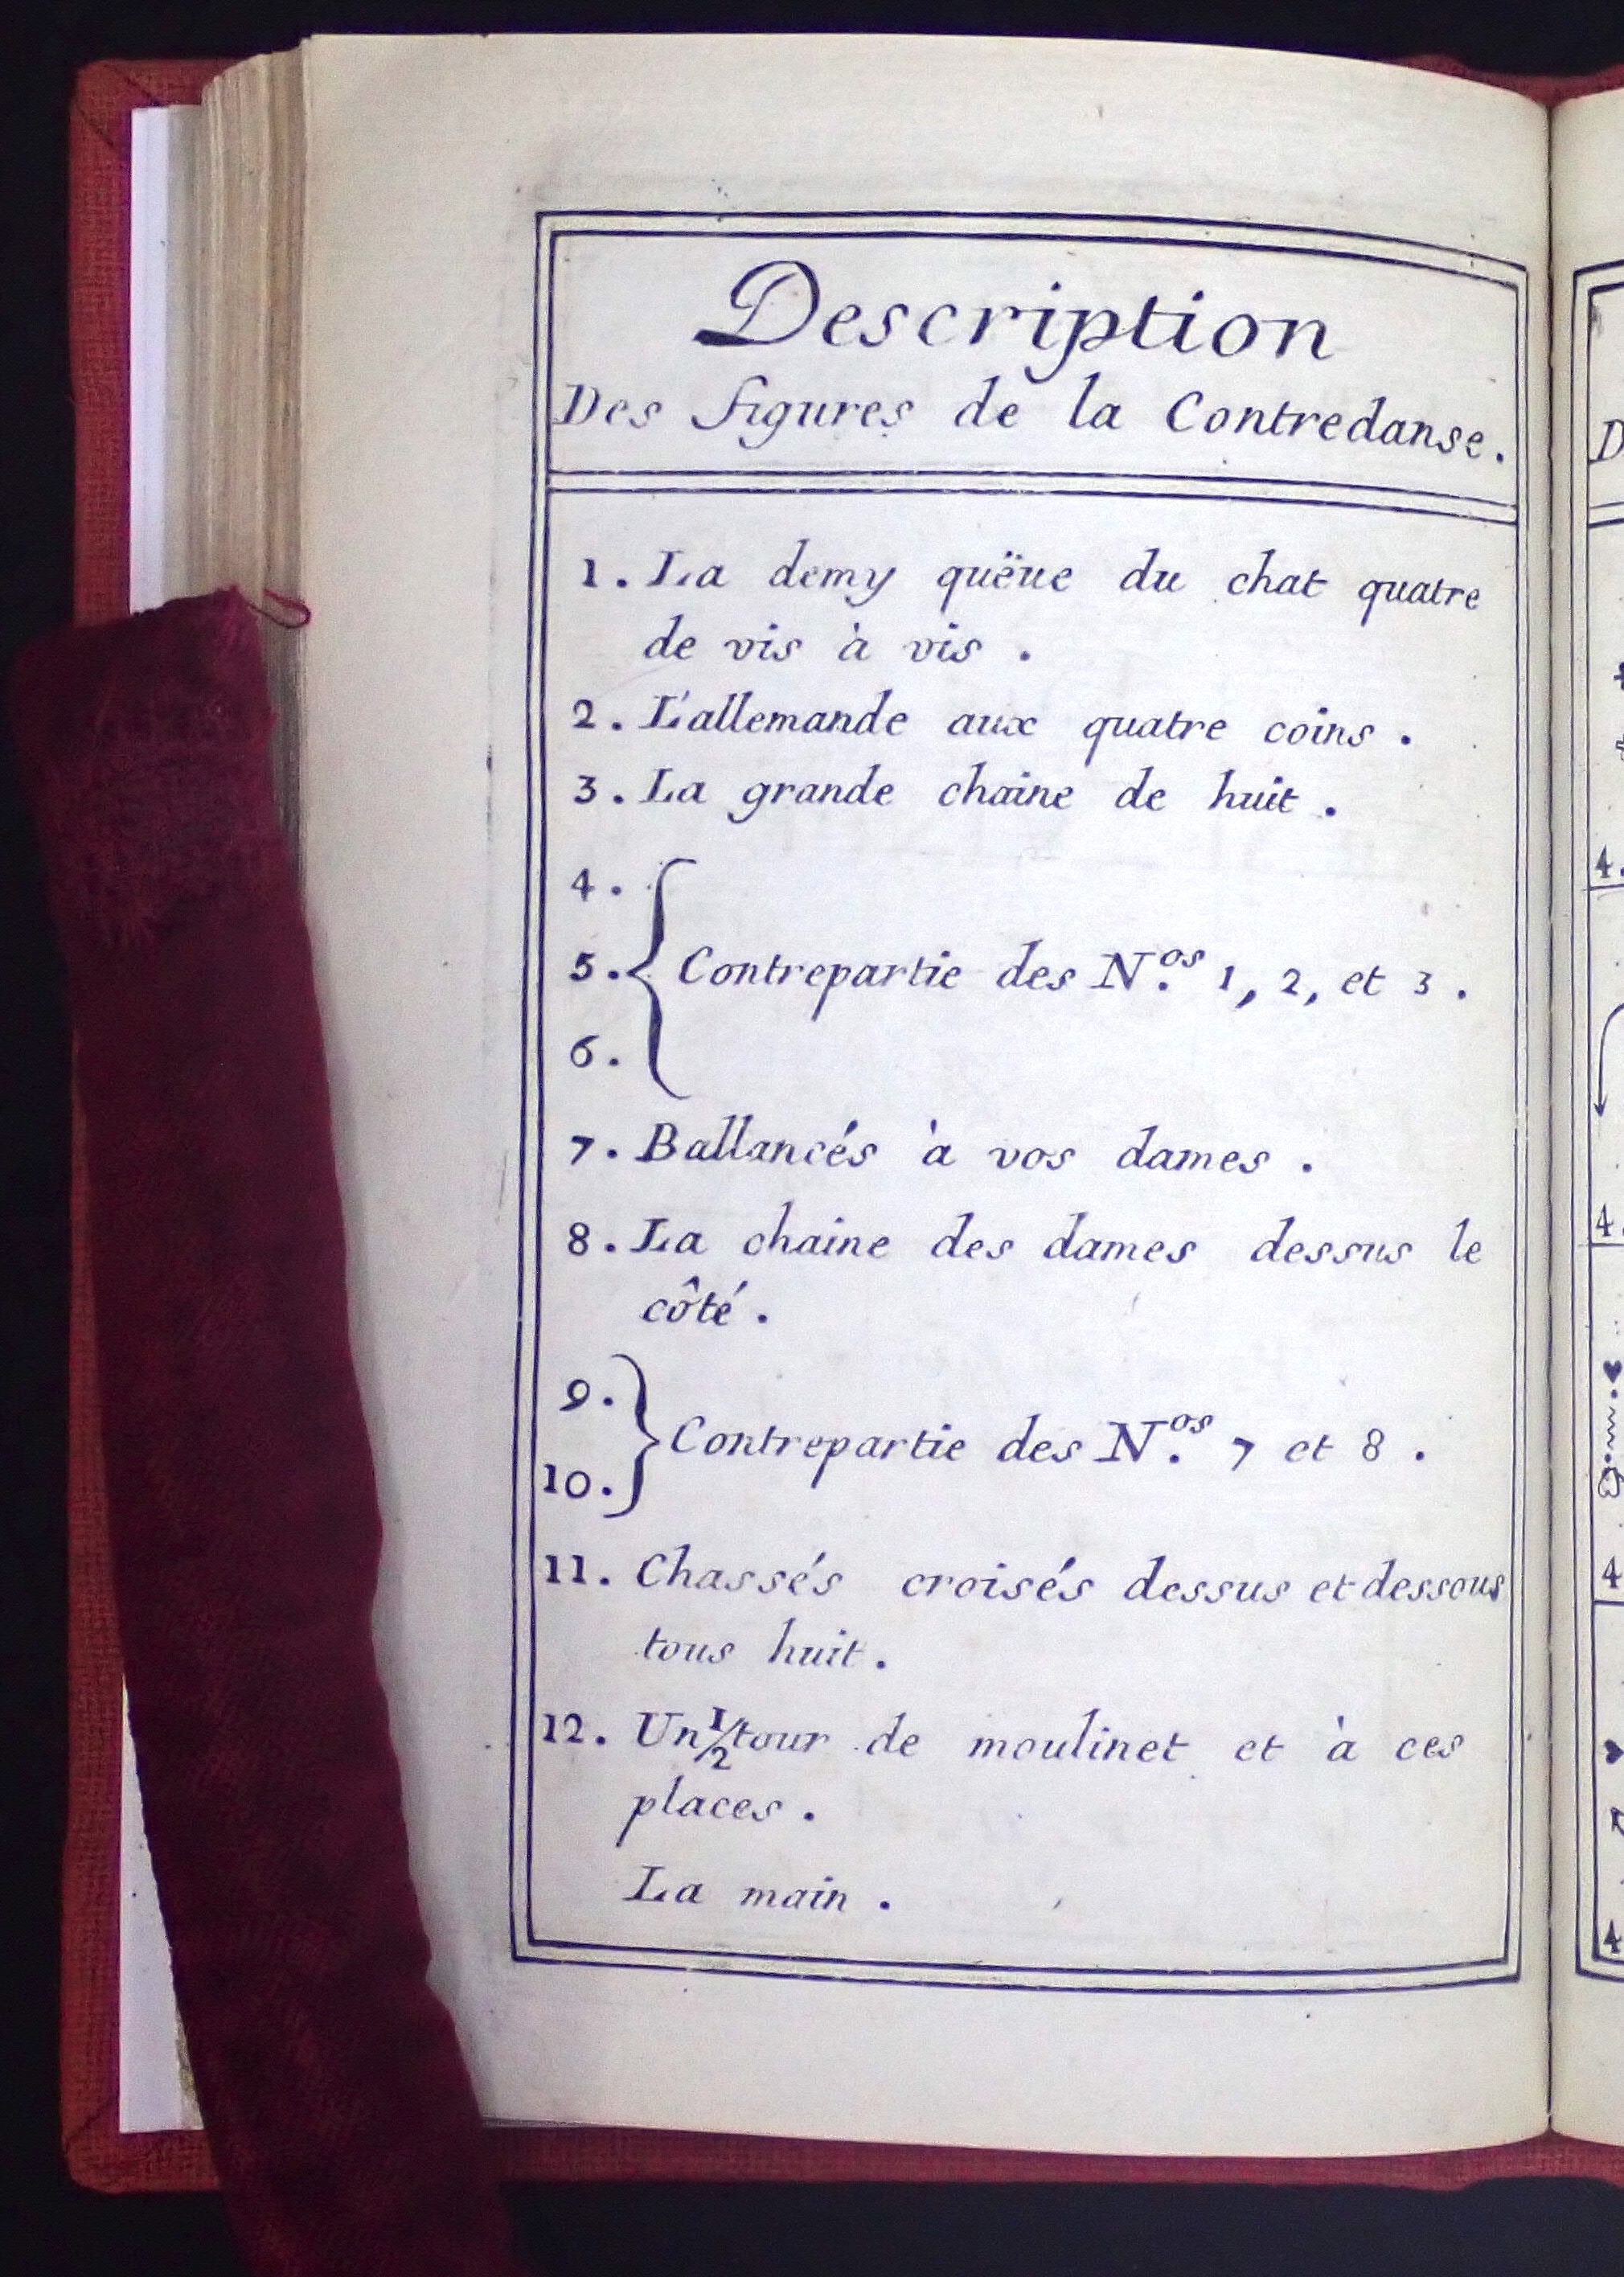 Description
Des figures de la Contredanse.
1. La demy quëue du chat quatre
de vis à vis .
2. L'allemande aux quatre coins .
3. La grande chaine de huit .
4.
5. Contrepartie des N.os 1, 2, et 3 .
6.
7. Ballancés à vos dames .
8. La chaine des dames dessus le
côté .
9.
Contrepartie des N.os 7 et 8 .
10.
11. Chassés croisés dessus et dessous
tous huit .
12. Un 1/2 tour de moulinet et à ces
places .
La main .
D
4.
4.
4
4